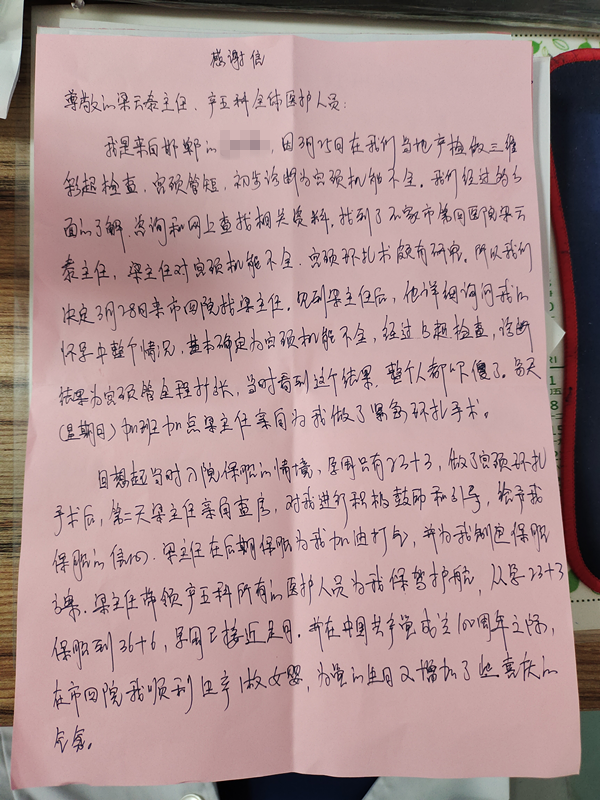 感谢信
尊敬的梁云泰主任、产五科全体医护人员：
我是来自邯郸的，因3月25日在我们当地产检做三维
彩超检查，宫颈管短，初步诊断为宫颈机能不全。我们经过多方
面的了解、咨询和网上查找相关资料，找到了石家市第四医院梁云
泰主任，梁主任对宫颈机能不全、宫颈环扎术颇有研究。所以我们
决定3月28日来市四院找梁主任。见到梁主任后，他详细询问我的
怀孕平整个情况，基本确定为宫颈机能不全，经过B超检查，诊断
结果为宫颈管全程扩张，当时看到这个结果，整个人都吓傻了。当天
(星期日)加班加点梁主任亲自为我做了紧急环扎手术。
回想起当时入院保胎的情境，孕周只有23+3，做了宫颈环扎
手术后，第二天梁主任亲自查房，对我进行积极鼓励和引导，给予我
保胎的信心。梁主任在后期保胎为我加油打气，并为我制定保胎
方案。梁主任带领产五科所有的医护人员为我保驾护航，从孕23+3
保胎到36+6，孕周已接近足月。并在中国共产党成立100周年之际，
在市四院我顺利生产1枚女婴，为党的生日又增加了一些喜庆的
气氛。